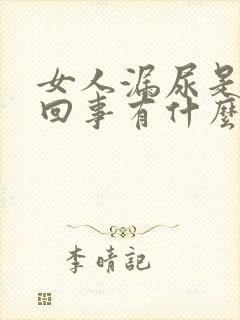 女人漏尿是
回事有什麼
李晴記